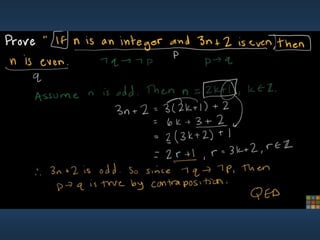 Prove "IF n is an integer and 3n+2 is even, then
n is even.
p
q
¬q → ¬p
p → q
Assume n is odd. Then n = 2k+1, k ∈ Z.
3n+2 = 3(2k+1) + 2
= 6k + 3 + 2
= 2(3k+2) + 1
= 2r+1, r = 3k+2, r ∈ Z
∴ 3n+2 is odd. So since ¬q → ¬p, then
p → q is true by contraposition.
QED